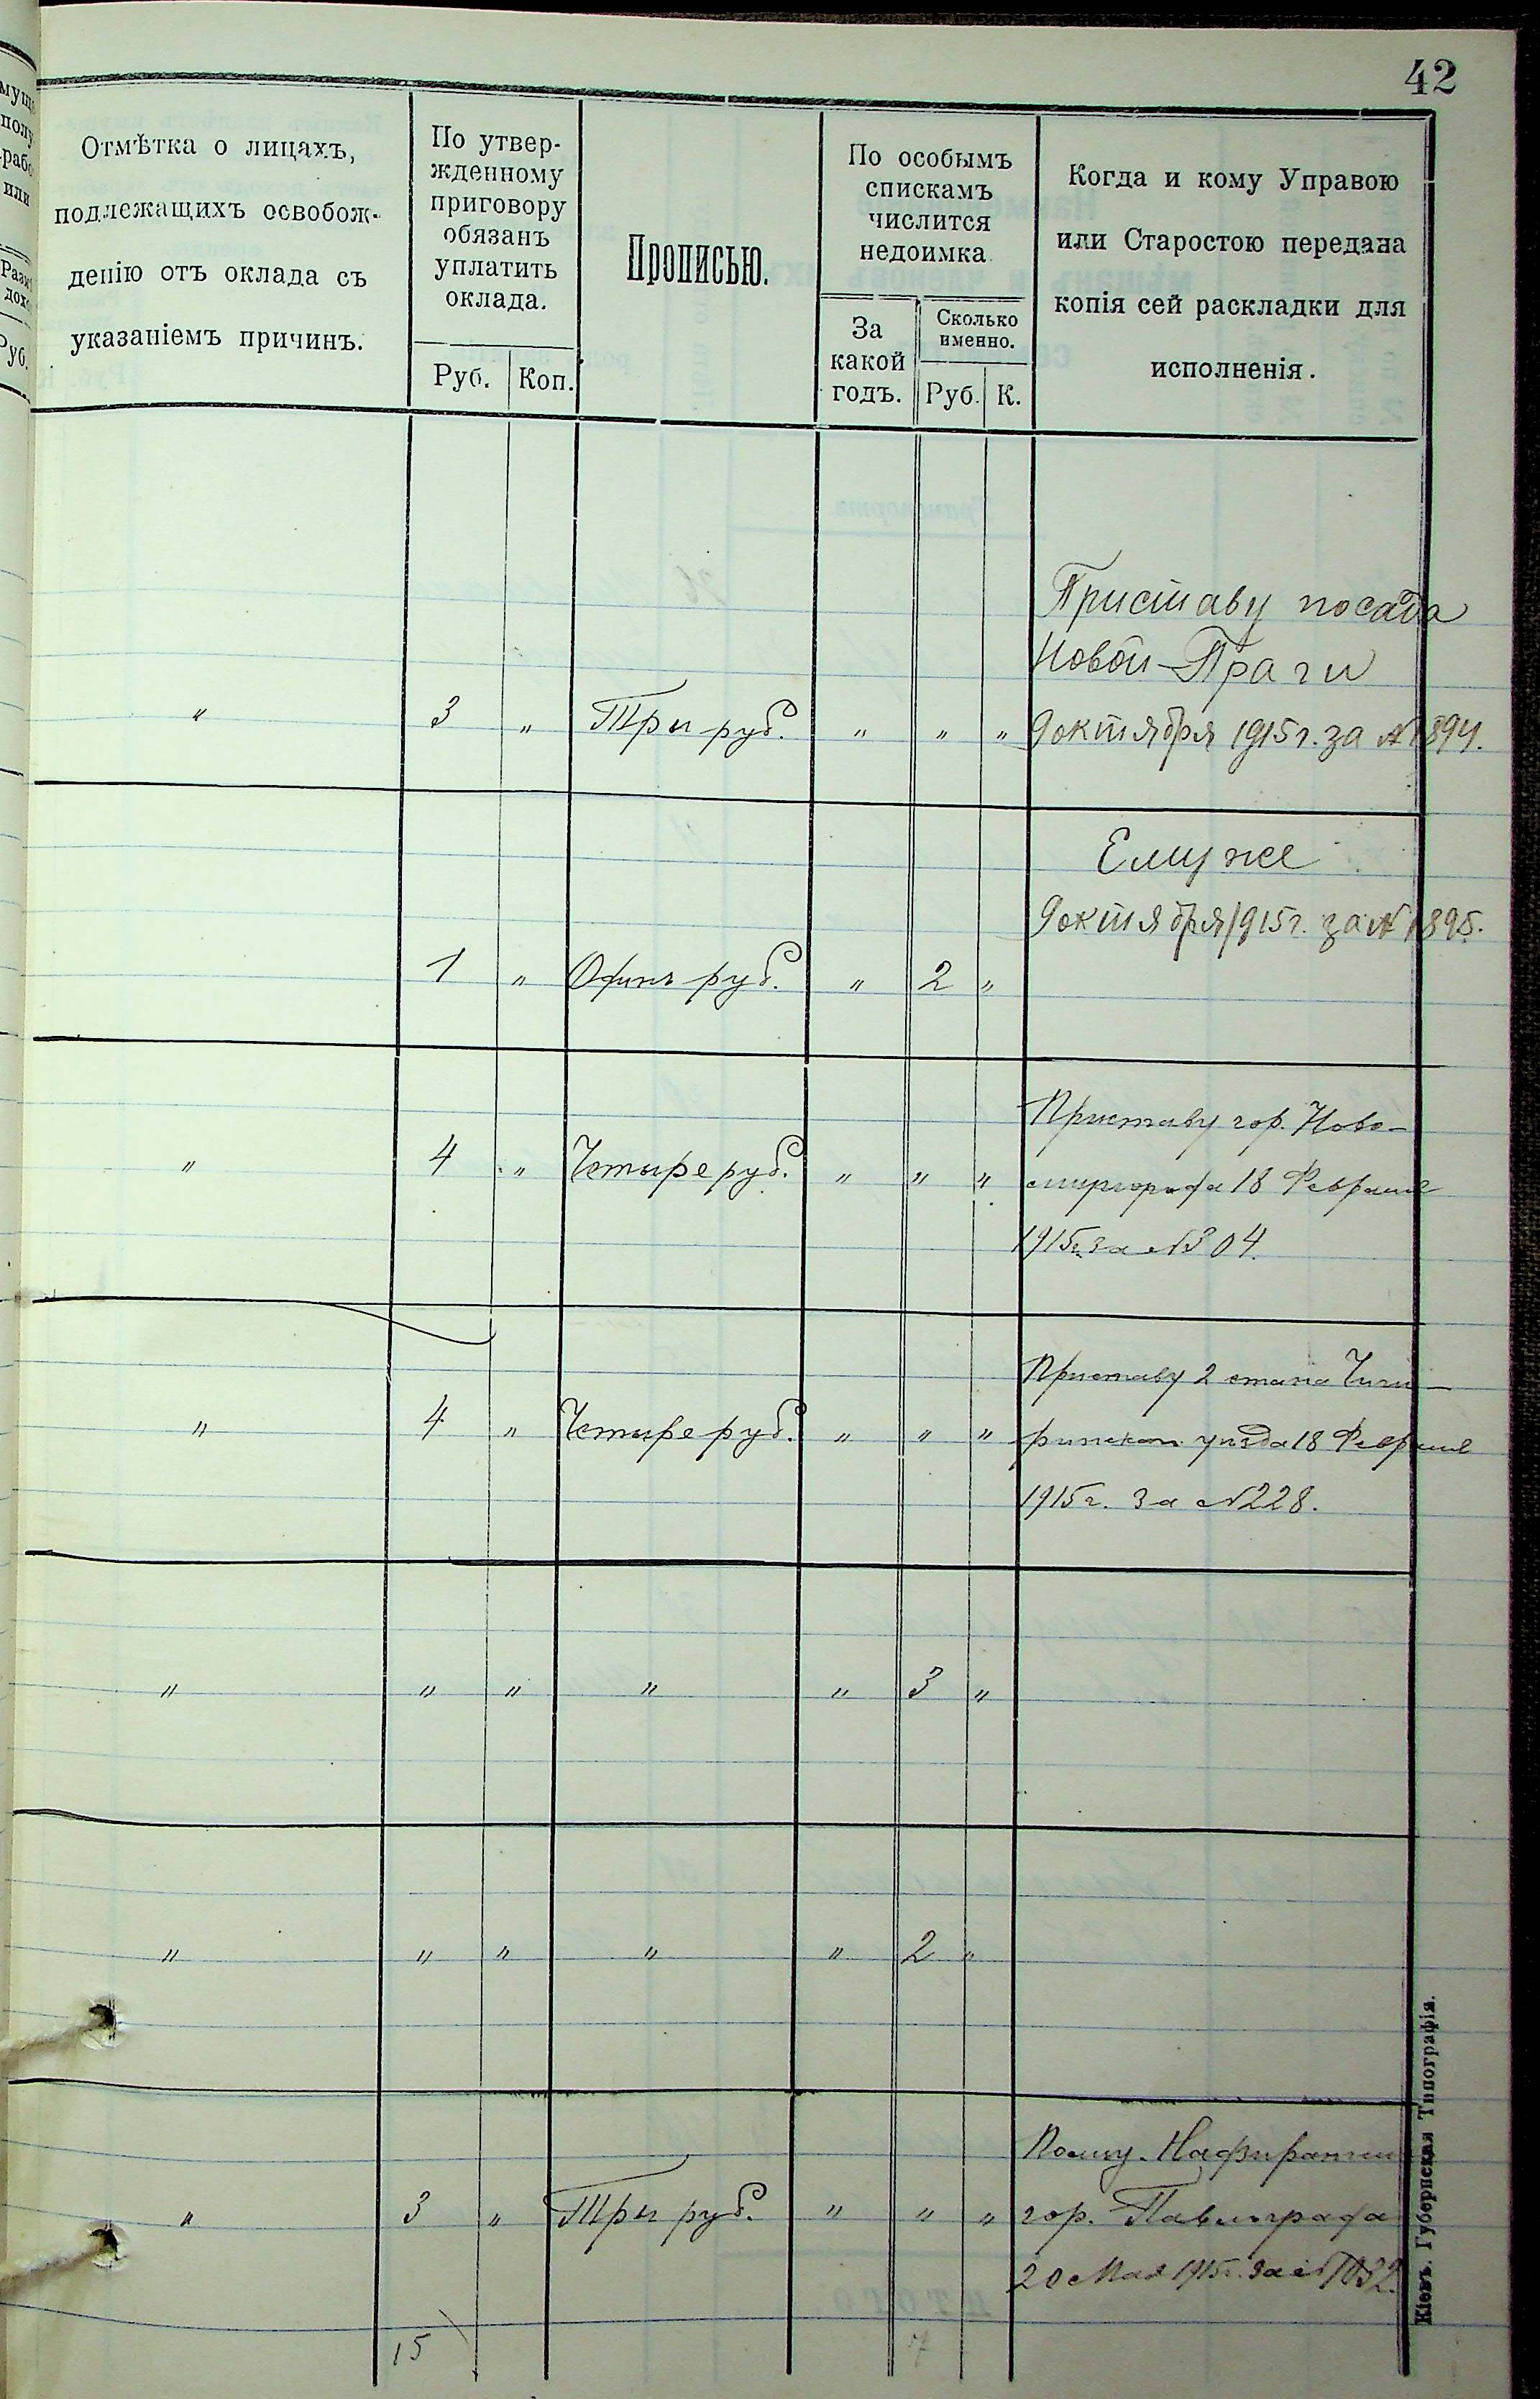 42
Отмѣтка о лицахъ,
подлежащихъ освобож-
денію отъ оклада съ
указаніемъ причинъ.
По утвер-
жденному
приговору
обязанъ
уплатить
оклада.
Руб. Коп.
Прописью.
По особымъ
спискамъ
числится
недоимка
За
какой
годъ.
Сколько
именно.
Руб. К.
Когда и кому Управою
или Старостою передана
копія сей раскладки для
исполненія.
Приставу посада
Новой-Праги
" 3 " Три руб. " " " 9 октября 1915 г. за № 1894.
Ему же
9 октября 1915 г. за № 1895.
1 " Одинъ руб. " 2 "
Приставу гор. Ново-
" 4 " Четыре руб. " " " миргорода 18 Февраля
1915 г. за № 304.
Приставу 2 стана Чиги-
" 4 " Четыре руб. " " " ринскаго уѣзда 18 Февраля
1915 г. за № 228.
" " " " " 3 "
" " " " " 2 "
Надзирателю
" 3 " Три руб. " " " гор. Павлограда
20 Мая 1915 г. за № 1032.
15 7
Кіевъ. Губернская Типографія.